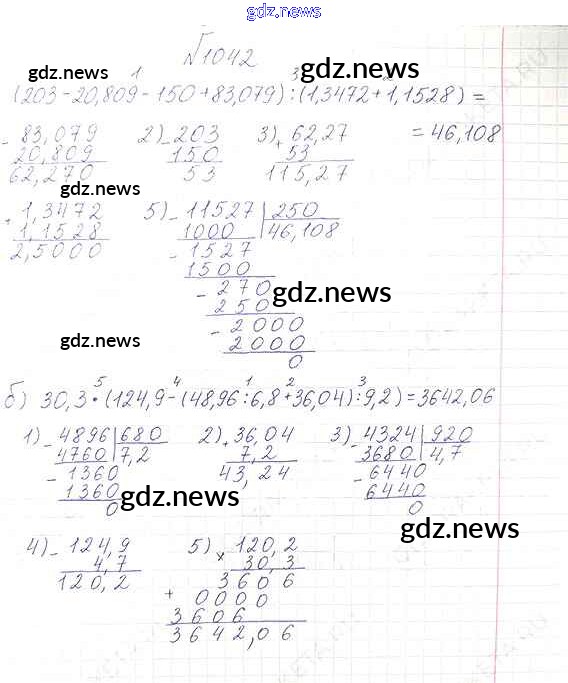 gdz.news
№1042
gdz.news
gdz.news
1 3 2
(203-20,809-150+83,079):(1,3472+1,1528)=
= 46,108
- 83,079
20,809
62,270
2) - 203
150
53
3) + 62,27
53
115,27
gdz.news
+ 1,3472
1,1528
2,5000
5) - 11527 | 250
1000 46,108
- 1527
1500
- 270
250
- 2000
2000
0
gdz.news
gdz.news
5 4 1 2 3
б) 30,3•(124,9-(48,96:6,8+36,04):9,2)=3642,06
1) - 4896 | 680
4760 7,2
- 1360
1360
0
2) + 36,04
7,2
43,24
3) - 4324 | 920
3680 4,7
- 6440
6440
0
gdz.news
gdz.news
4) - 124,9
4,7
120,2
5) × 120,2
30,3
3606
+ 0000
3606
3642,06